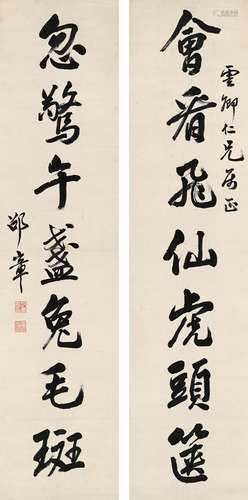 會看飛仙虎頭篋
雲卿仁兄屬正
忽驚午盞兔毛斑
邵章